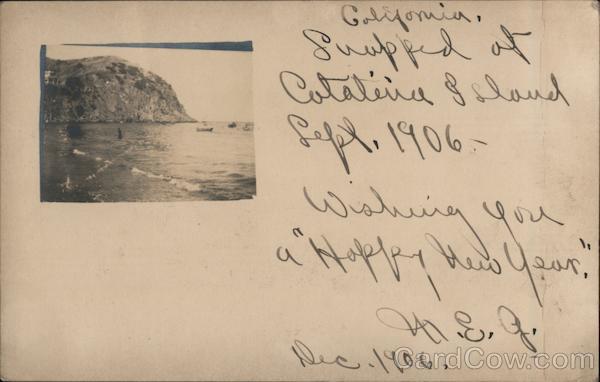 California.
Snapped at
Catalina Island
Sept. 1906-
Wishing you
a "Happy New Year."
E. G.
Dec. 1906.
CardCow.com